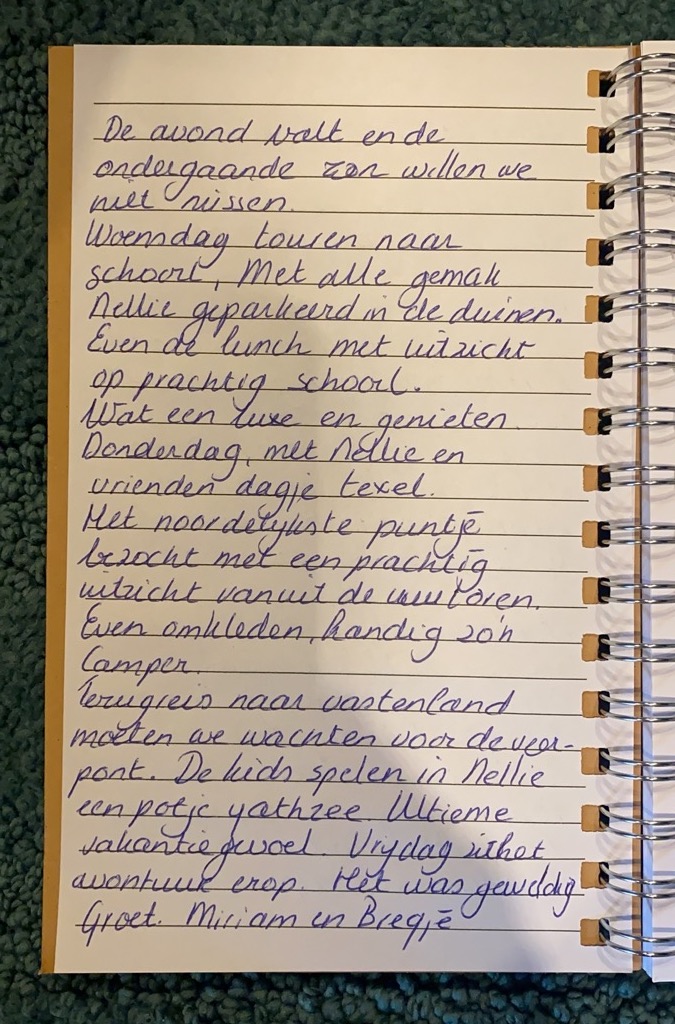 De avond valt en de
ondergaande zon willen we
niet missen.
Woensdag touren naar
schoorl, Met alle gemak
Nellie geparkeerd in de duinen.
Even de lunch met uitzicht
op prachtig schoorl.
Wat een luxe en genieten.
Donderdag, met Nellie en
vrienden dagje texel.
Het noordelijkste puntje
bezocht met een prachtig
uitzicht vanuit de vuurtoren.
Even omkleden, handig zo'n
Camper.
Terugreis naar vastenland
moeten we wachten voor de veer-
pont. De kids spelen in Nellie
een potje yathzee. Ultieme
vakantiegevoel. Vrijdag zit het
avontuur erop. Het was geweldig
Groet. Miriam en Bregje